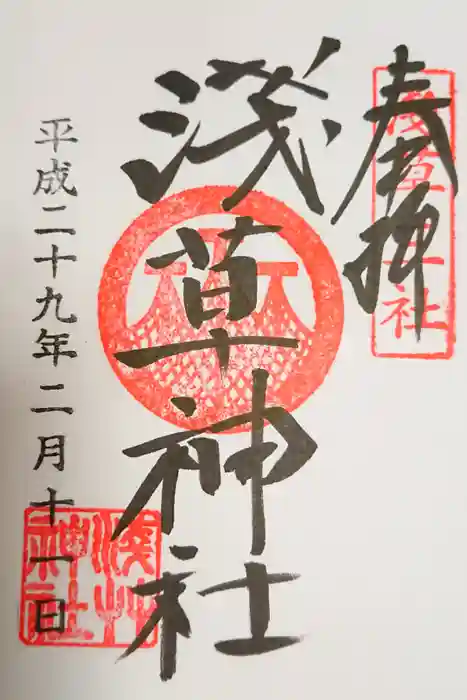 奉拝
淺草神社
淺草神社
平成二十九年二月十一日
淺草神社